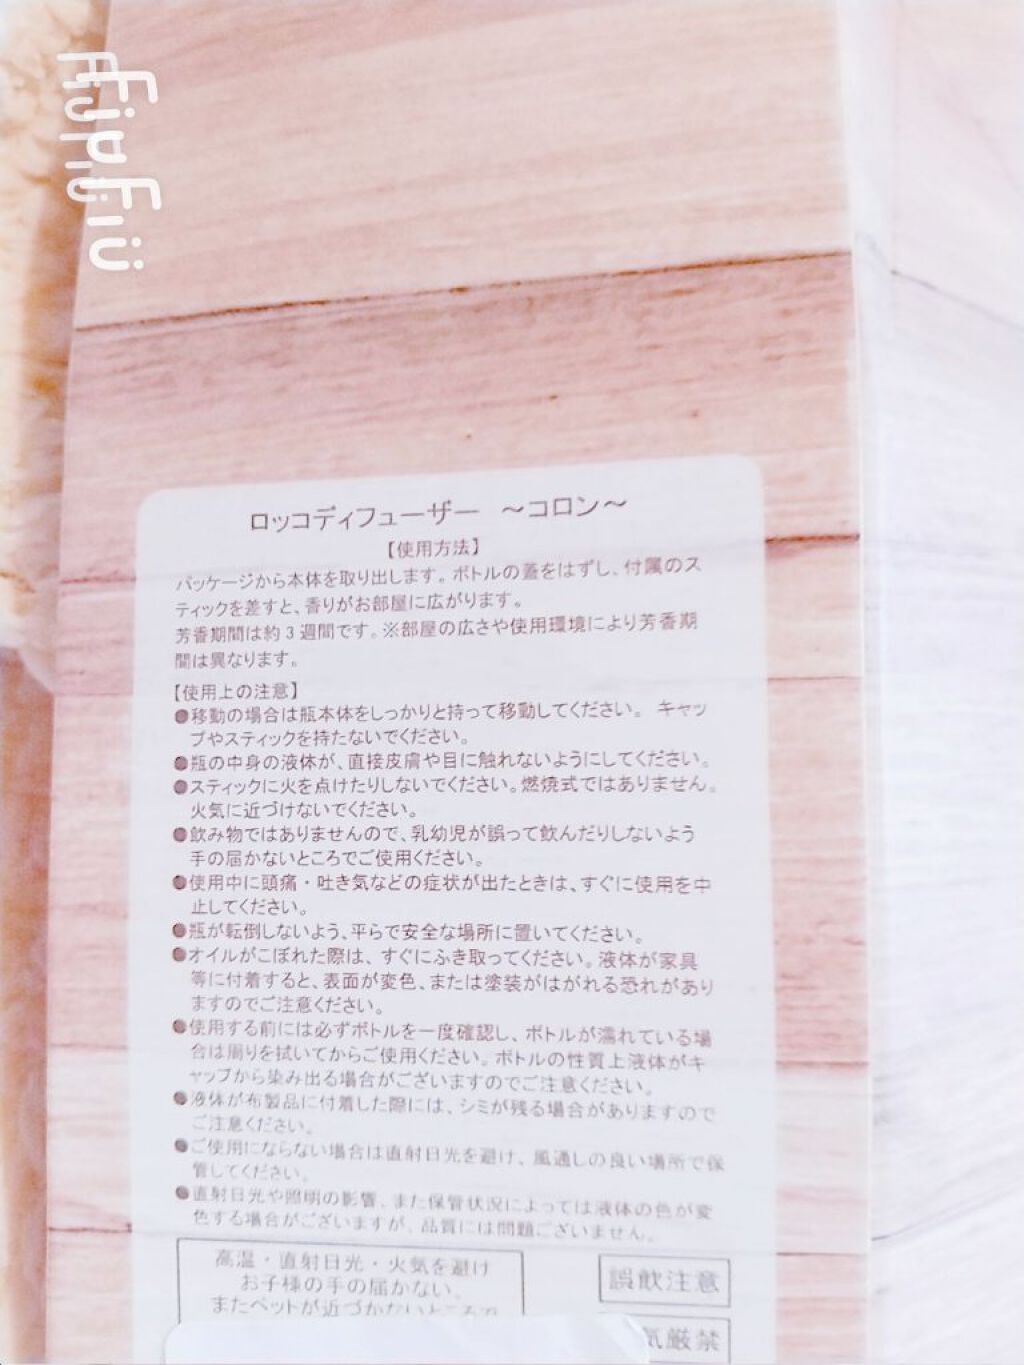 ロッコディフューザー ～コロン～
【使用方法】
パッケージから本体を取り出します。ボトルの蓋をはずし、付属のス
ティックを差すと、香りがお部屋に広がります。
芳香期間は約3週間です。※部屋の広さや使用環境により芳香期
間は異なります。
【使用上の注意】
●移動の場合は瓶本体をしっかりと持って移動してください。 キャッ
プやスティックを持たないでください。
●瓶の中身の液体が、直接皮膚や目に触れないようにしてください。
●スティックに火を点けたりしないでください。燃焼式ではありません。
火気に近づけないでください。
●飲み物ではありませんので、乳幼児が誤って飲んだりしないよう
手の届かないところでご使用ください。
●使用中に頭痛・吐き気などの症状が出たときは、すぐに使用を中
止してください。
●瓶が転倒しないよう、平らで安全な場所に置いてください。
●オイルがこぼれた際は、すぐにふき取ってください。液体が家具
等に付着すると、表面が変色、または塗装がはがれる恐れがあり
ますのでご注意ください。
●使用する前には必ずボトルを一度確認し、ボトルが濡れている場
合は周りを拭いてからご使用ください。ボトルの性質上液体がキ
ャップから染み出る場合がございますのでご注意ください。
●液体が布製品に付着した際には、シミが残る場合がありますので
ご注意ください。
●ご使用にならない場合は直射日光を避け、風通しの良い場所で保
管してください。
●直射日光や照明の影響、また保管状況によっては液体の色が変
色する場合がございますが、品質には問題ございません。
高温・直射日光・火気を避け
お子様の手の届かない、
またペットが近づかないところで
誤飲注意
気厳禁